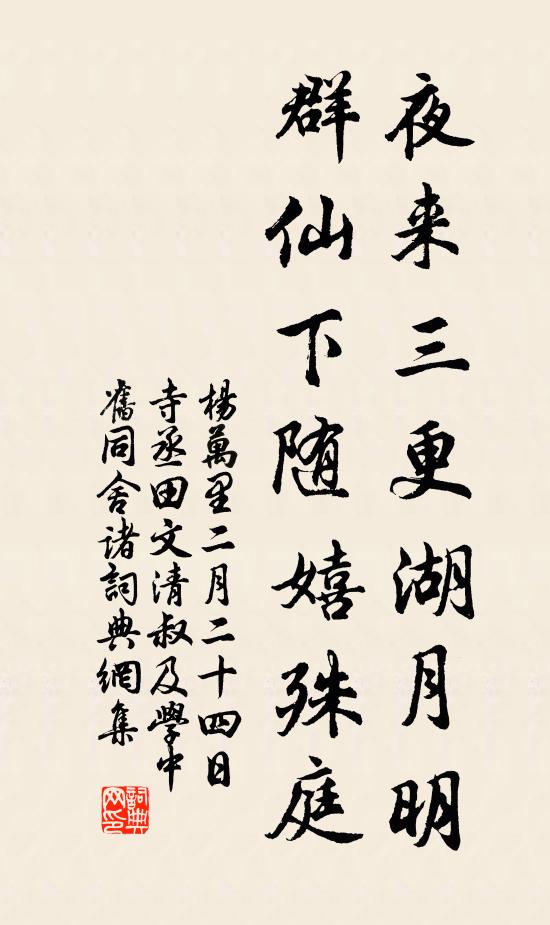 夜来三更湖月明
群仙下随嬉殊庭
楊萬里二月二十四日
寺丞田文清叔及學中
舊同舍諸詞典網集
詞典網印